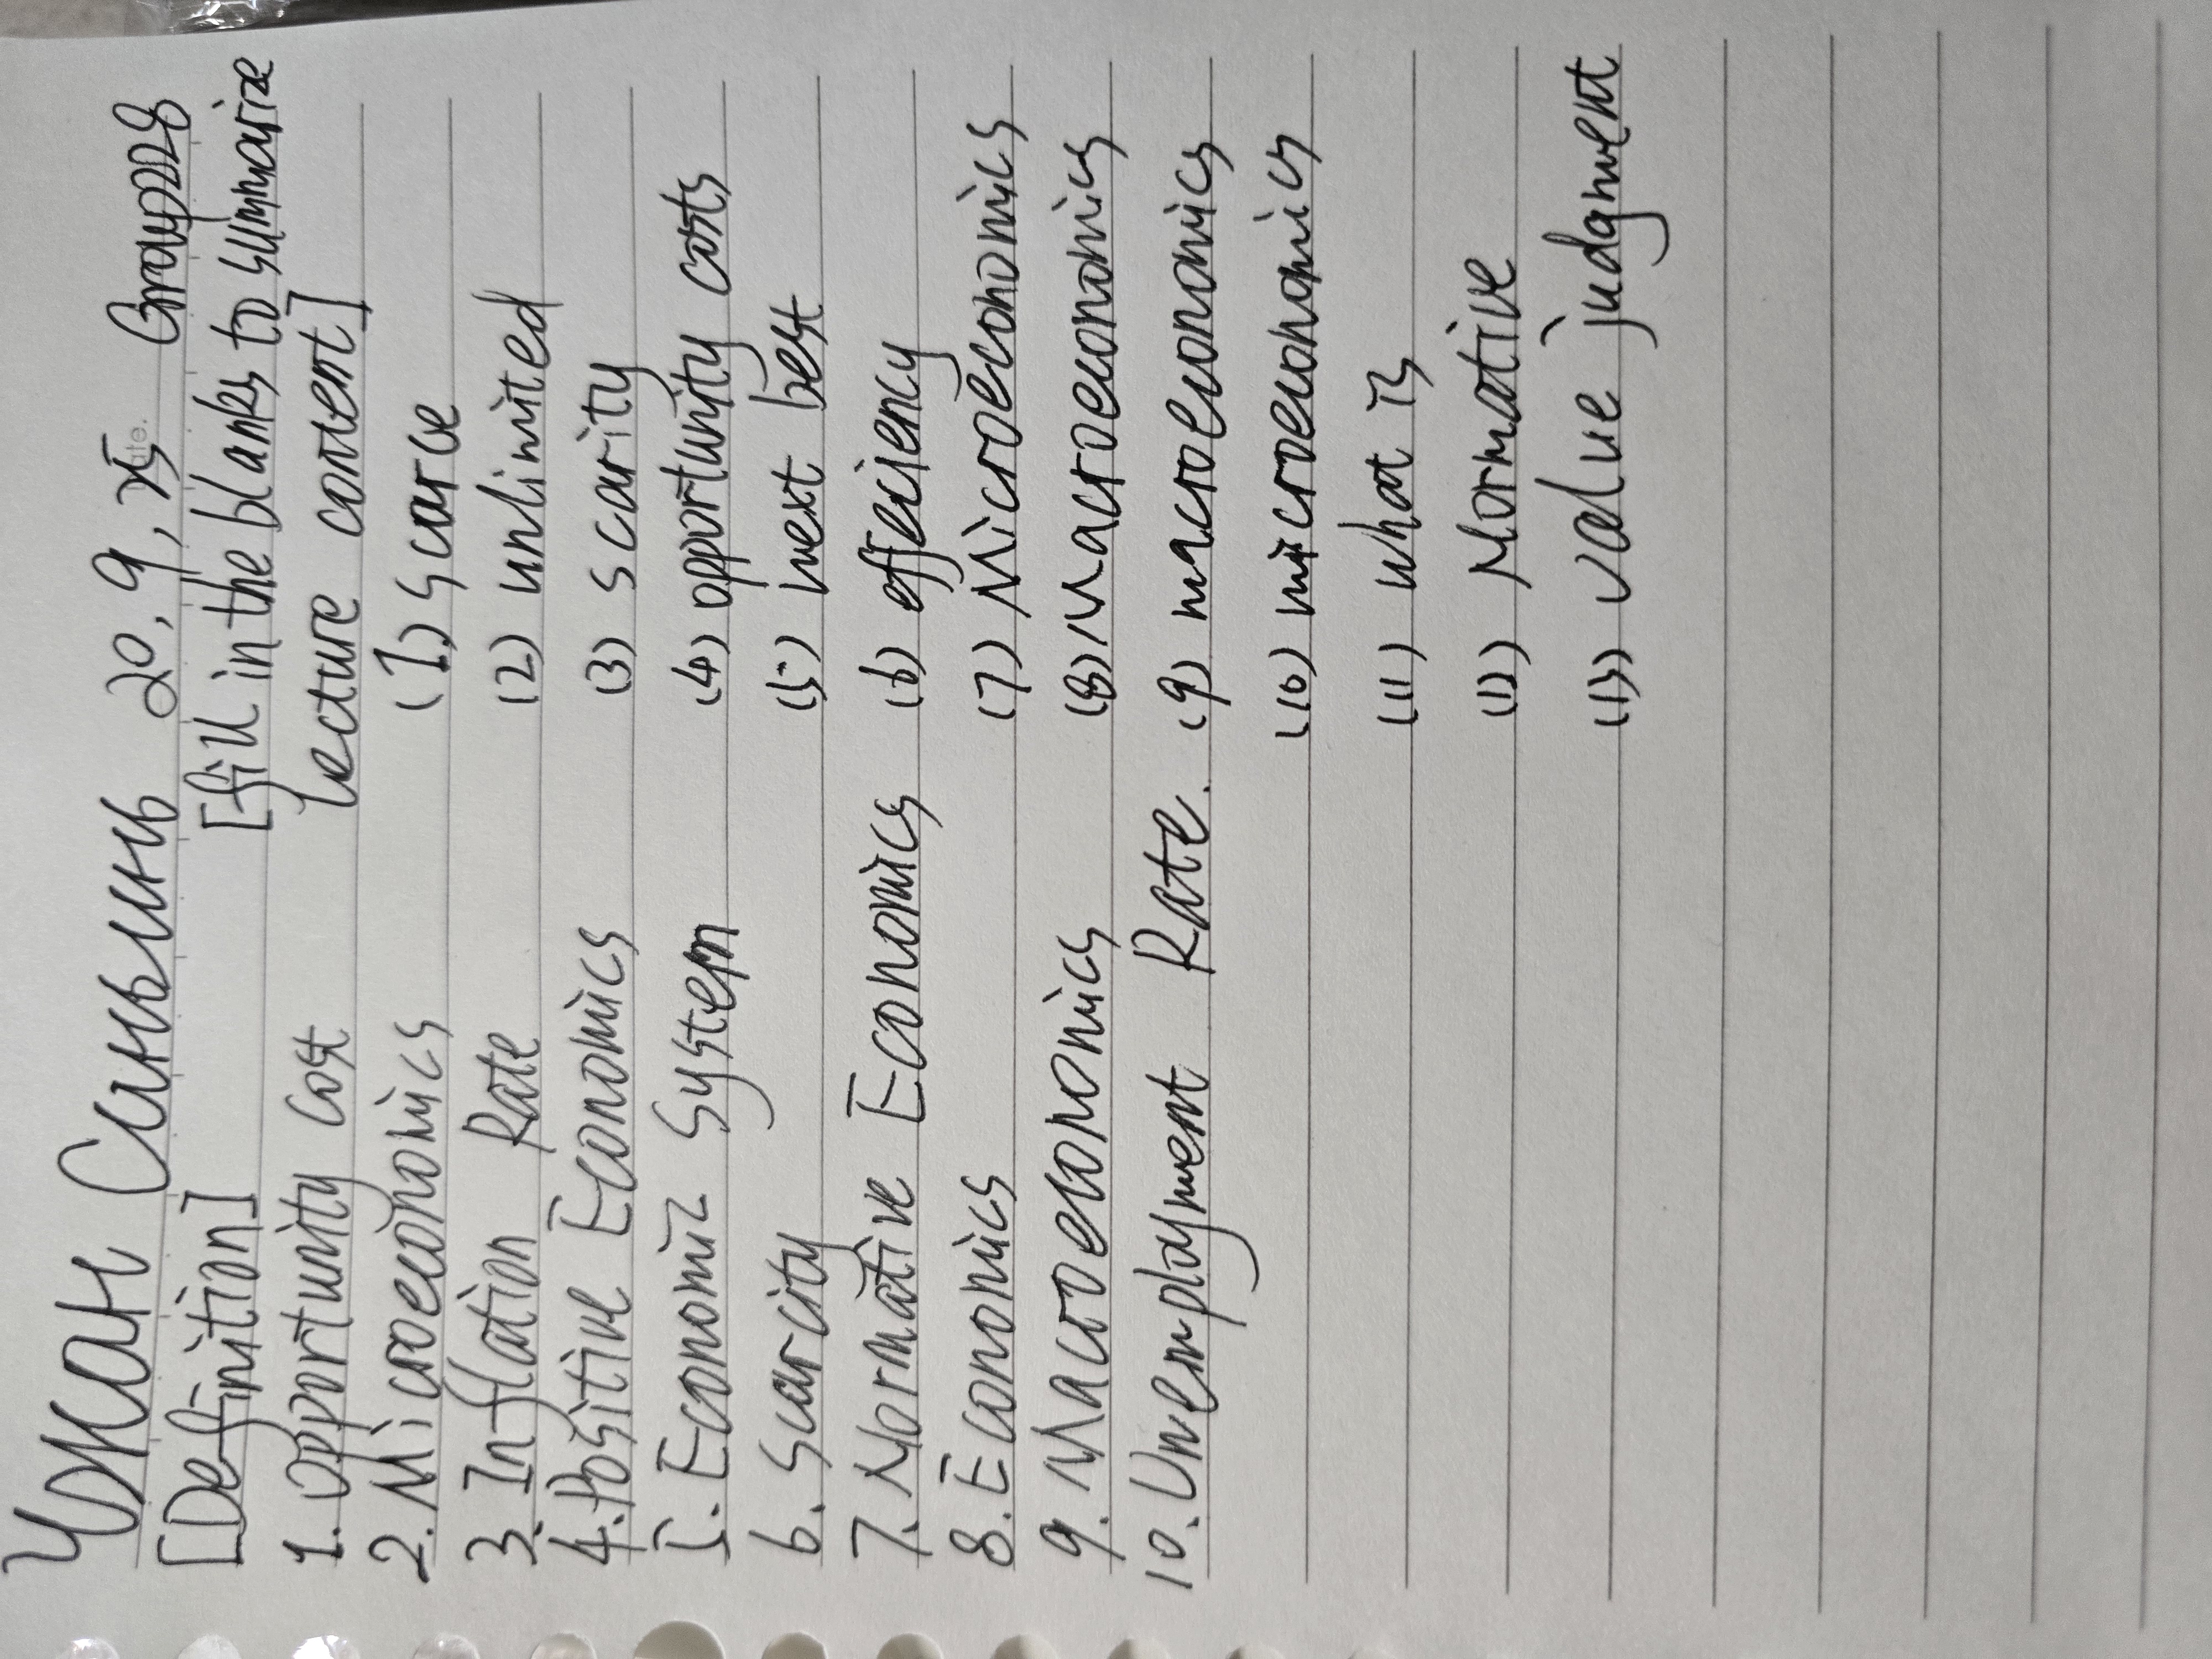 Чжан Синьминь 20, 9, 25 Group228
[Definition]
1. Opportunity Cost
2. Microeconomics
3. Inflation Rate
4. Positive Economics
5. Economic System
6. Scarcity
7. Normative Economics
8. Economics
9. Macroeconomics
10. Unemployment Rate.
[fill in the blanks to summarize
lecture content]
(1) scarce
(2) unlimited
(3) scarity
(4) opportunity costs
(5) next best
(6) effeciency
(7) Microeconomics
(8) Macroeconomics
(9) macroeconomics
(10) microeconomics
(11) what is
(12) Normative
(13) value judgment